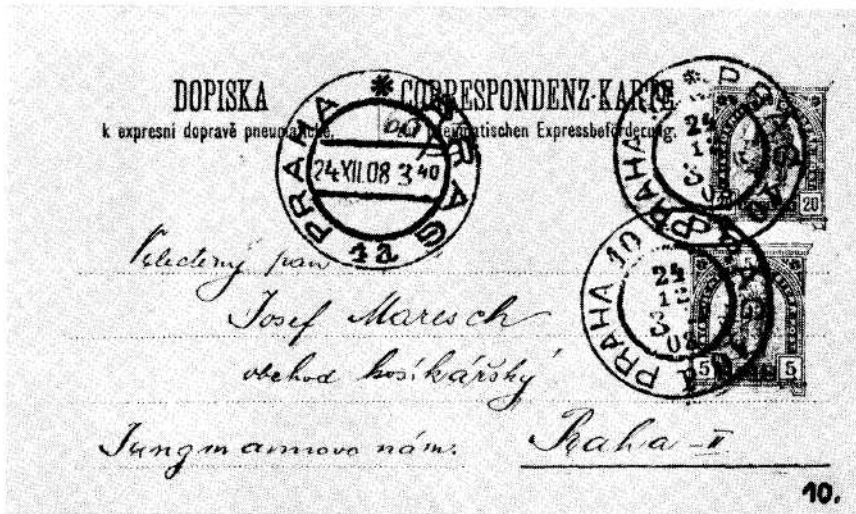 DOPISKA
k expresní dopravě pneumatické.
CORRESPONDENZ-KARTE
zur pneumatischen Expressbeförderung.
PRAHA * PRAG
24 XII.08 3 40
4a
PRAHA 10 * PRAG 10
24
12
3
08
20
PRAHA 10 * PRAG 10
24
12
3
08
5 5
Velectený pan
Josef Maresch
obchod košíkářský
Jungmannovo nám. Praha-II
10.